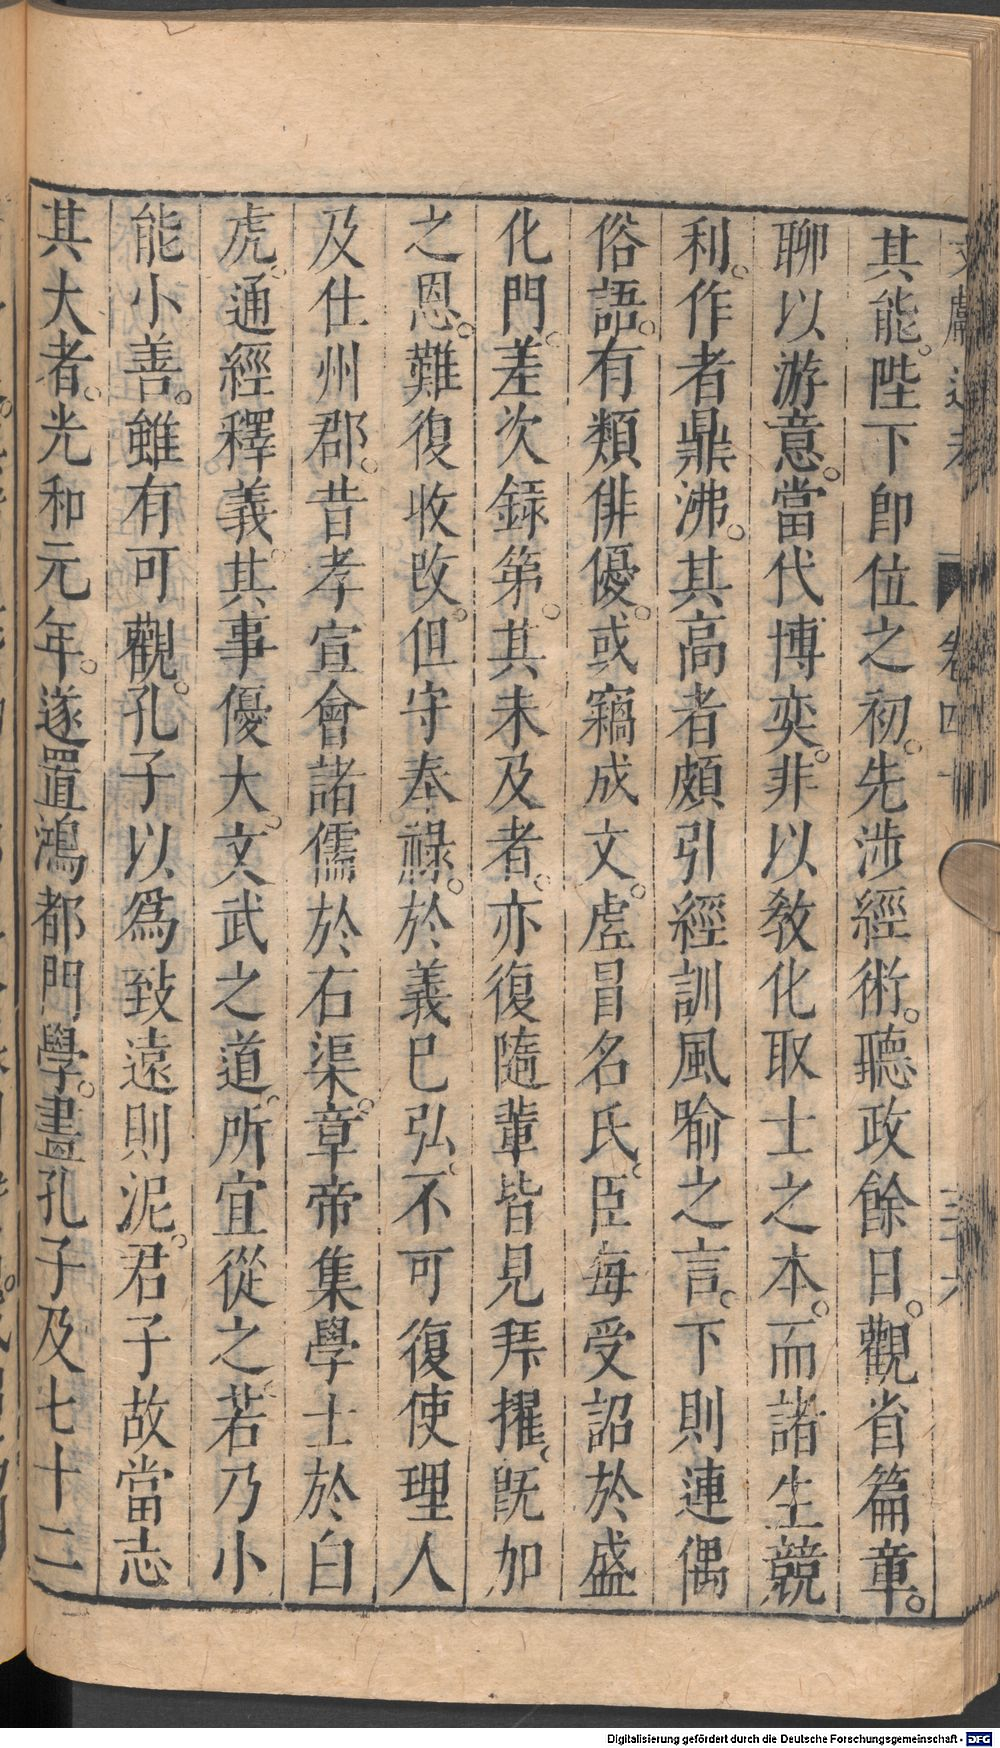 文獻通考 卷四十 三十六
其能。陛下卽位之初。先涉經術。聽政餘日。觀省篇章。
聊以游意。當代博奕。非以教化取士之本。而諸生競
利。作者鼎沸。其高者頗引經訓風喻之言。下則連偶
俗語。有類俳優。或竊成文。虛冒名氏。臣每受詔於盛
化門。差次錄第。其未及者。亦復隨輩皆見拜擢。旣加
之恩。難復收改。但守奉祿。於義已弘。不可復使理人
及仕州郡。昔孝宣會諸儒於石渠。章帝集學士於白
虎。通經釋義。其事優大。文武之道。所宜從之。若乃小
能小善。雖有可觀。孔子以爲致遠則泥。君子故當志
其大者。光和元年。遂置鴻都門學。畫孔子及七十二
Digitalisierung gefördert durch die Deutsche Forschungsgemeinschaft - DFG